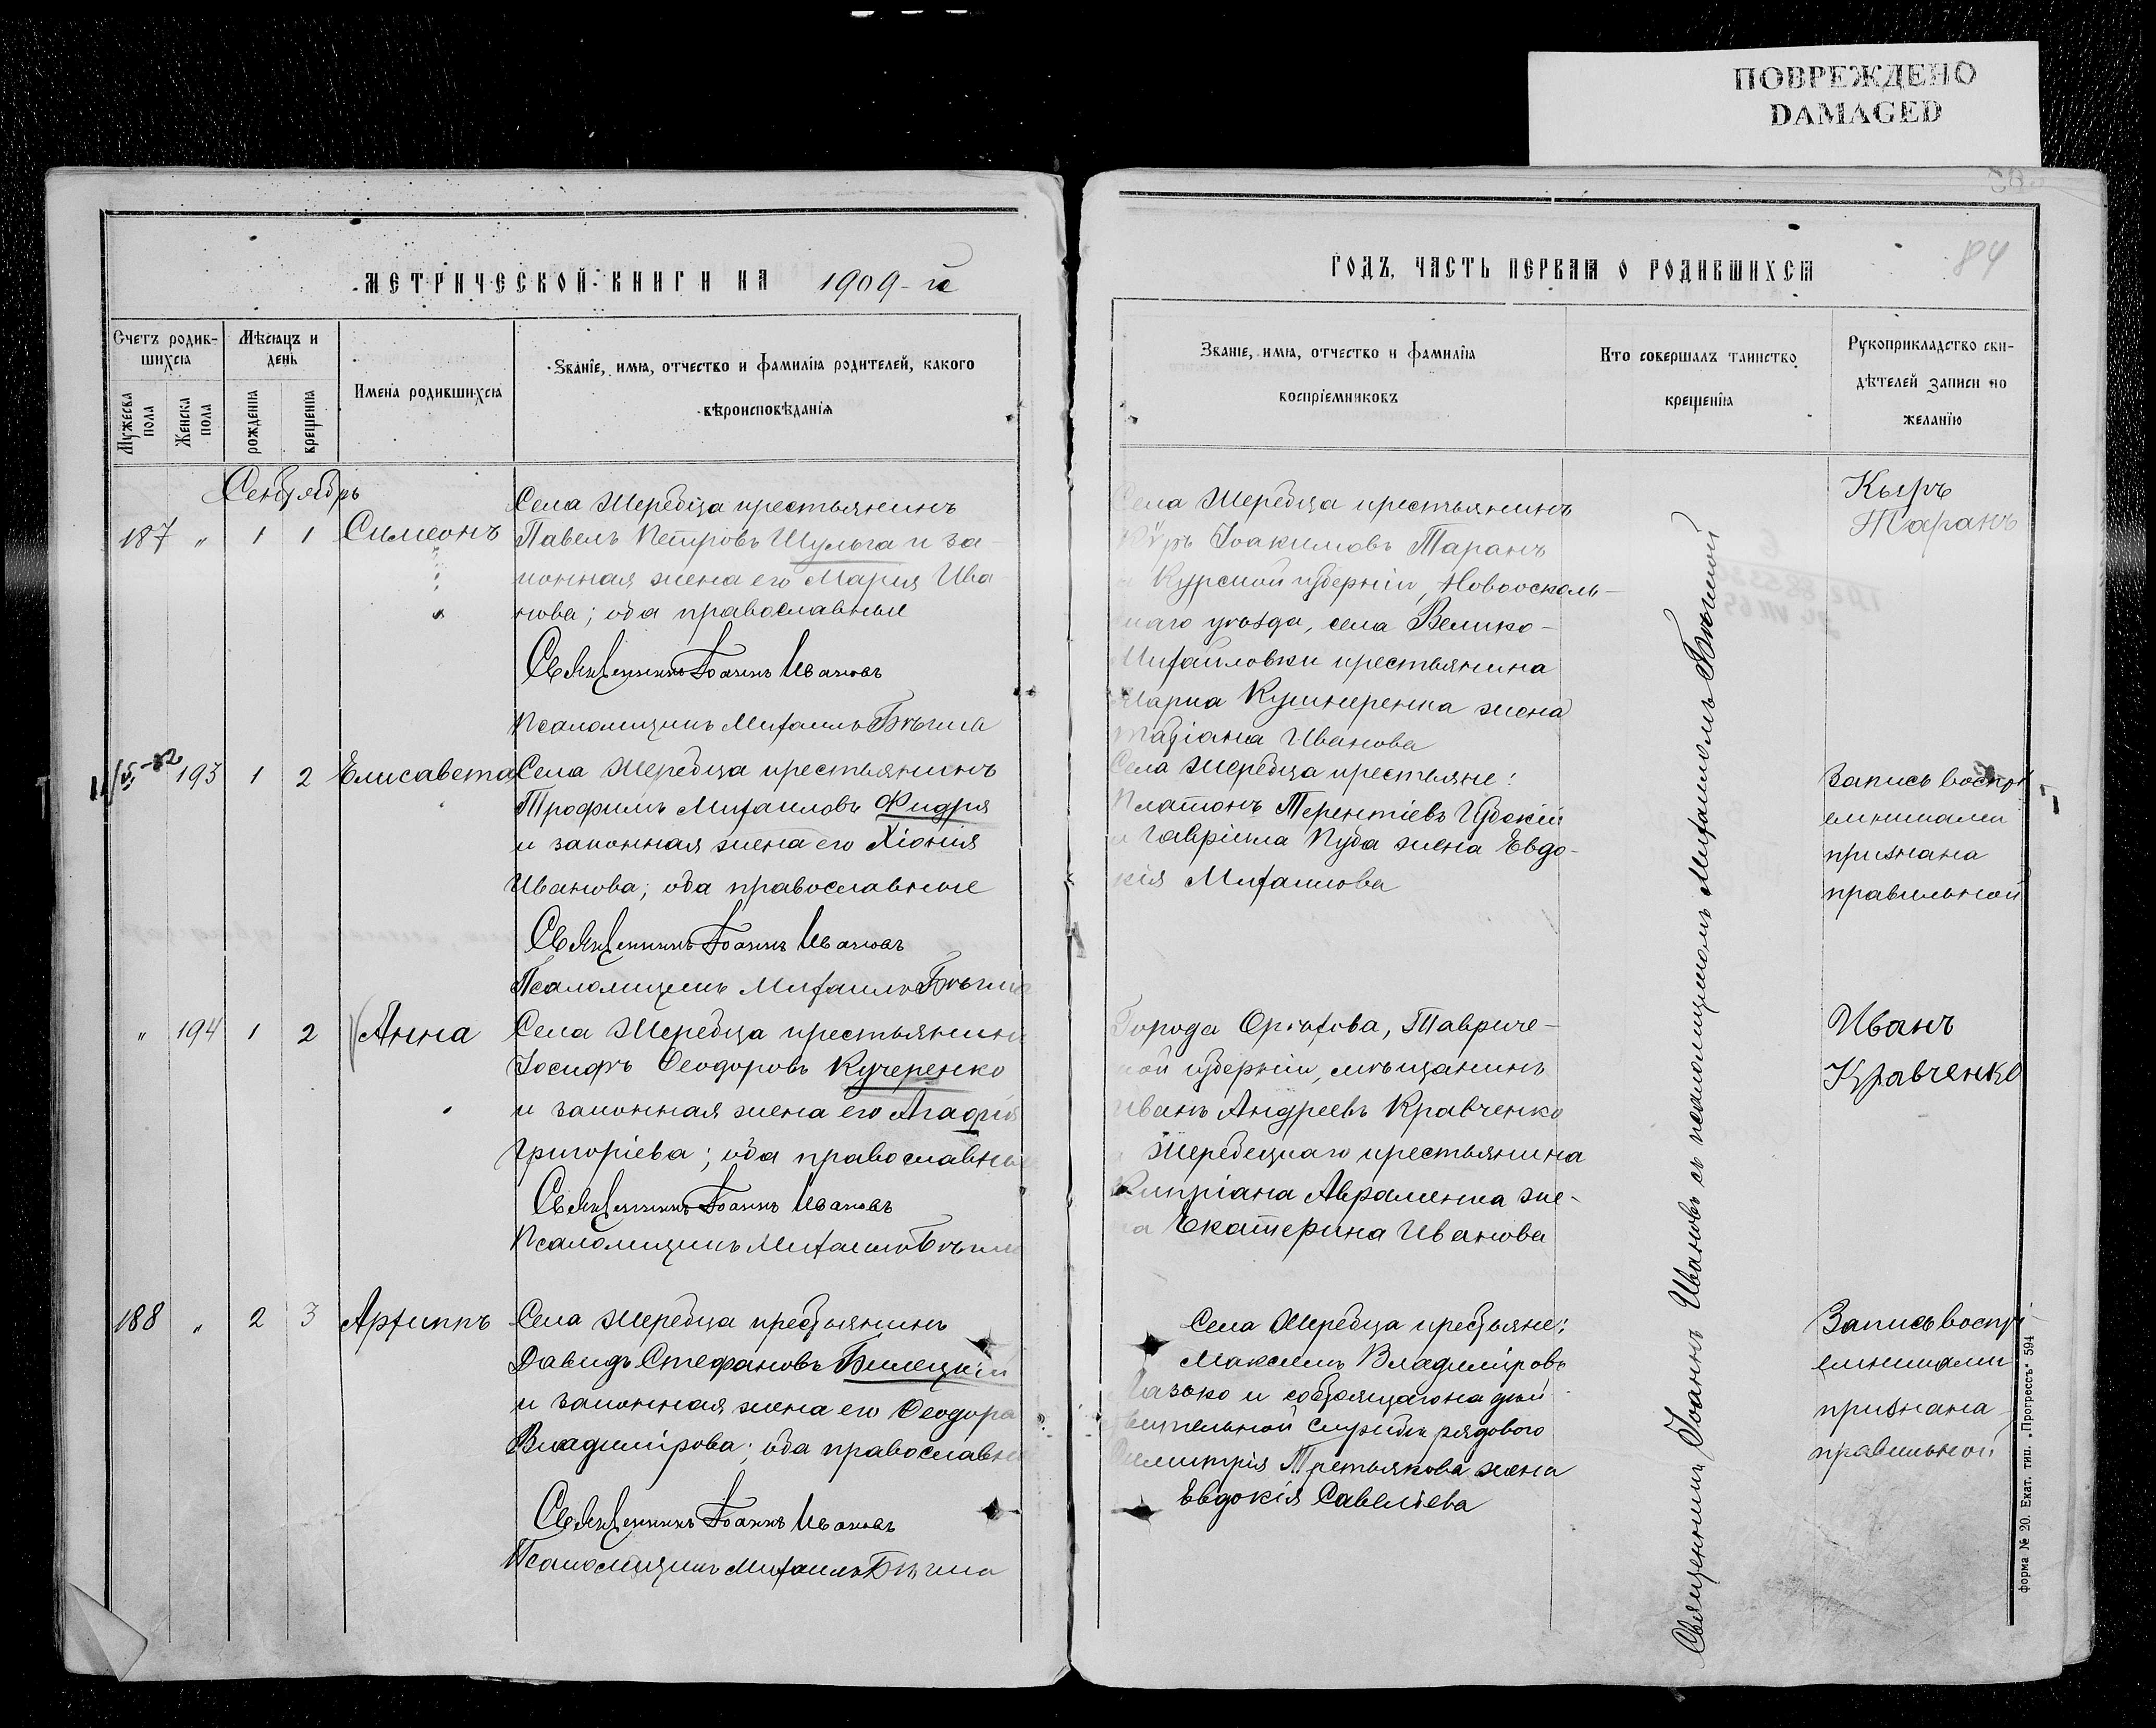 ПОВРЕЖДЕНО
DAMAGED
84
МЕТРИЧЕСКОЙ КНИГИ НА 1909-й
ГОДЪ, ЧАСТЬ ПЕРВАЯ О РОДИВШИХСЯ
Счетъ родив-
шихся
Мужеска пола
Женска пола
Мѣсяцъ и
день
рожденія
крещенія
Имена родившихся
Званіе, имя, отчество и фамилія родителей, какого
вѣроисповѣданія
Званіе, имя, отчество и фамилія
воспріемниковъ
Кто совершалъ таинство
крещенія
Рукоприкладство сви-
дѣтелей записи по
желанію
Сентябрь
187 " 1 1 Симеонъ
Села Жеребца крестьянинъ
Павелъ Петровъ Шульга и за-
конная жена его Марія Ива-
нова; оба православные
Священникъ Іоаннъ Ивановъ
Псаломщикъ Михаилъ
Села Жеребца крестьянинъ
Кѵръ Іоакимовъ Таранъ
и Курской губерніи, Новоосколь-
скаго уѣзда, села Велико-
Михайловки крестьянина
Карпа Кушниренка жена
Татіана Иванова
Кыръ
Таранъ
193 1 2 Елисавета
Села Жеребца крестьянинъ
Трофимъ Михаиловъ Фидря
и законная жена его Хіонія
Иванова; оба православные
Священникъ Іоаннъ Ивановъ
Псаломщикъ Михаилъ
Села Жеребца крестьяне:
Платонъ Терентіевъ
и Гавріила Куба жена Евдо-
кія Михаилова
Запись воспрі-
емниками
признана
правильной
" 194 1 2 Анна
Села Жеребца крестьянинъ
Іосифъ Ѳеодоровъ Кучеренко
и законная жена его Агафія
Григоріева; оба православные
Священникъ Іоаннъ Ивановъ
Псаломщикъ Михаилъ
Города Орѣхова, Тавриче-
ской губерніи, мѣщанинъ
Иванъ Андреевъ Кравченко
и Жеребецкаго крестьянина
Кипріана Авраменка же-
на Екатерина Иванова
Иванъ
Кравченко
188 " 2 3 Архиппъ
Села Жеребца крестьянинъ
Давидъ Стефановъ Билецкій
и законная жена его Ѳеодора
Владимірова; оба православные
Священникъ Іоаннъ Ивановъ
Псаломщикъ Михаилъ
Села Жеребца крестьяне:
Максимъ Владиміровъ
Лазько и состоящаго на дѣй-
ствительной службѣ рядового
Димитрія Третьякова жена
Евдокія Савеліева
Запись воспрі-
емниками
признана
правильной
Священникъ Іоаннъ Ивановъ съ псаломщикомъ Михаиломъ
форма № 20. Екат. тип. „Прогрессъ" 594